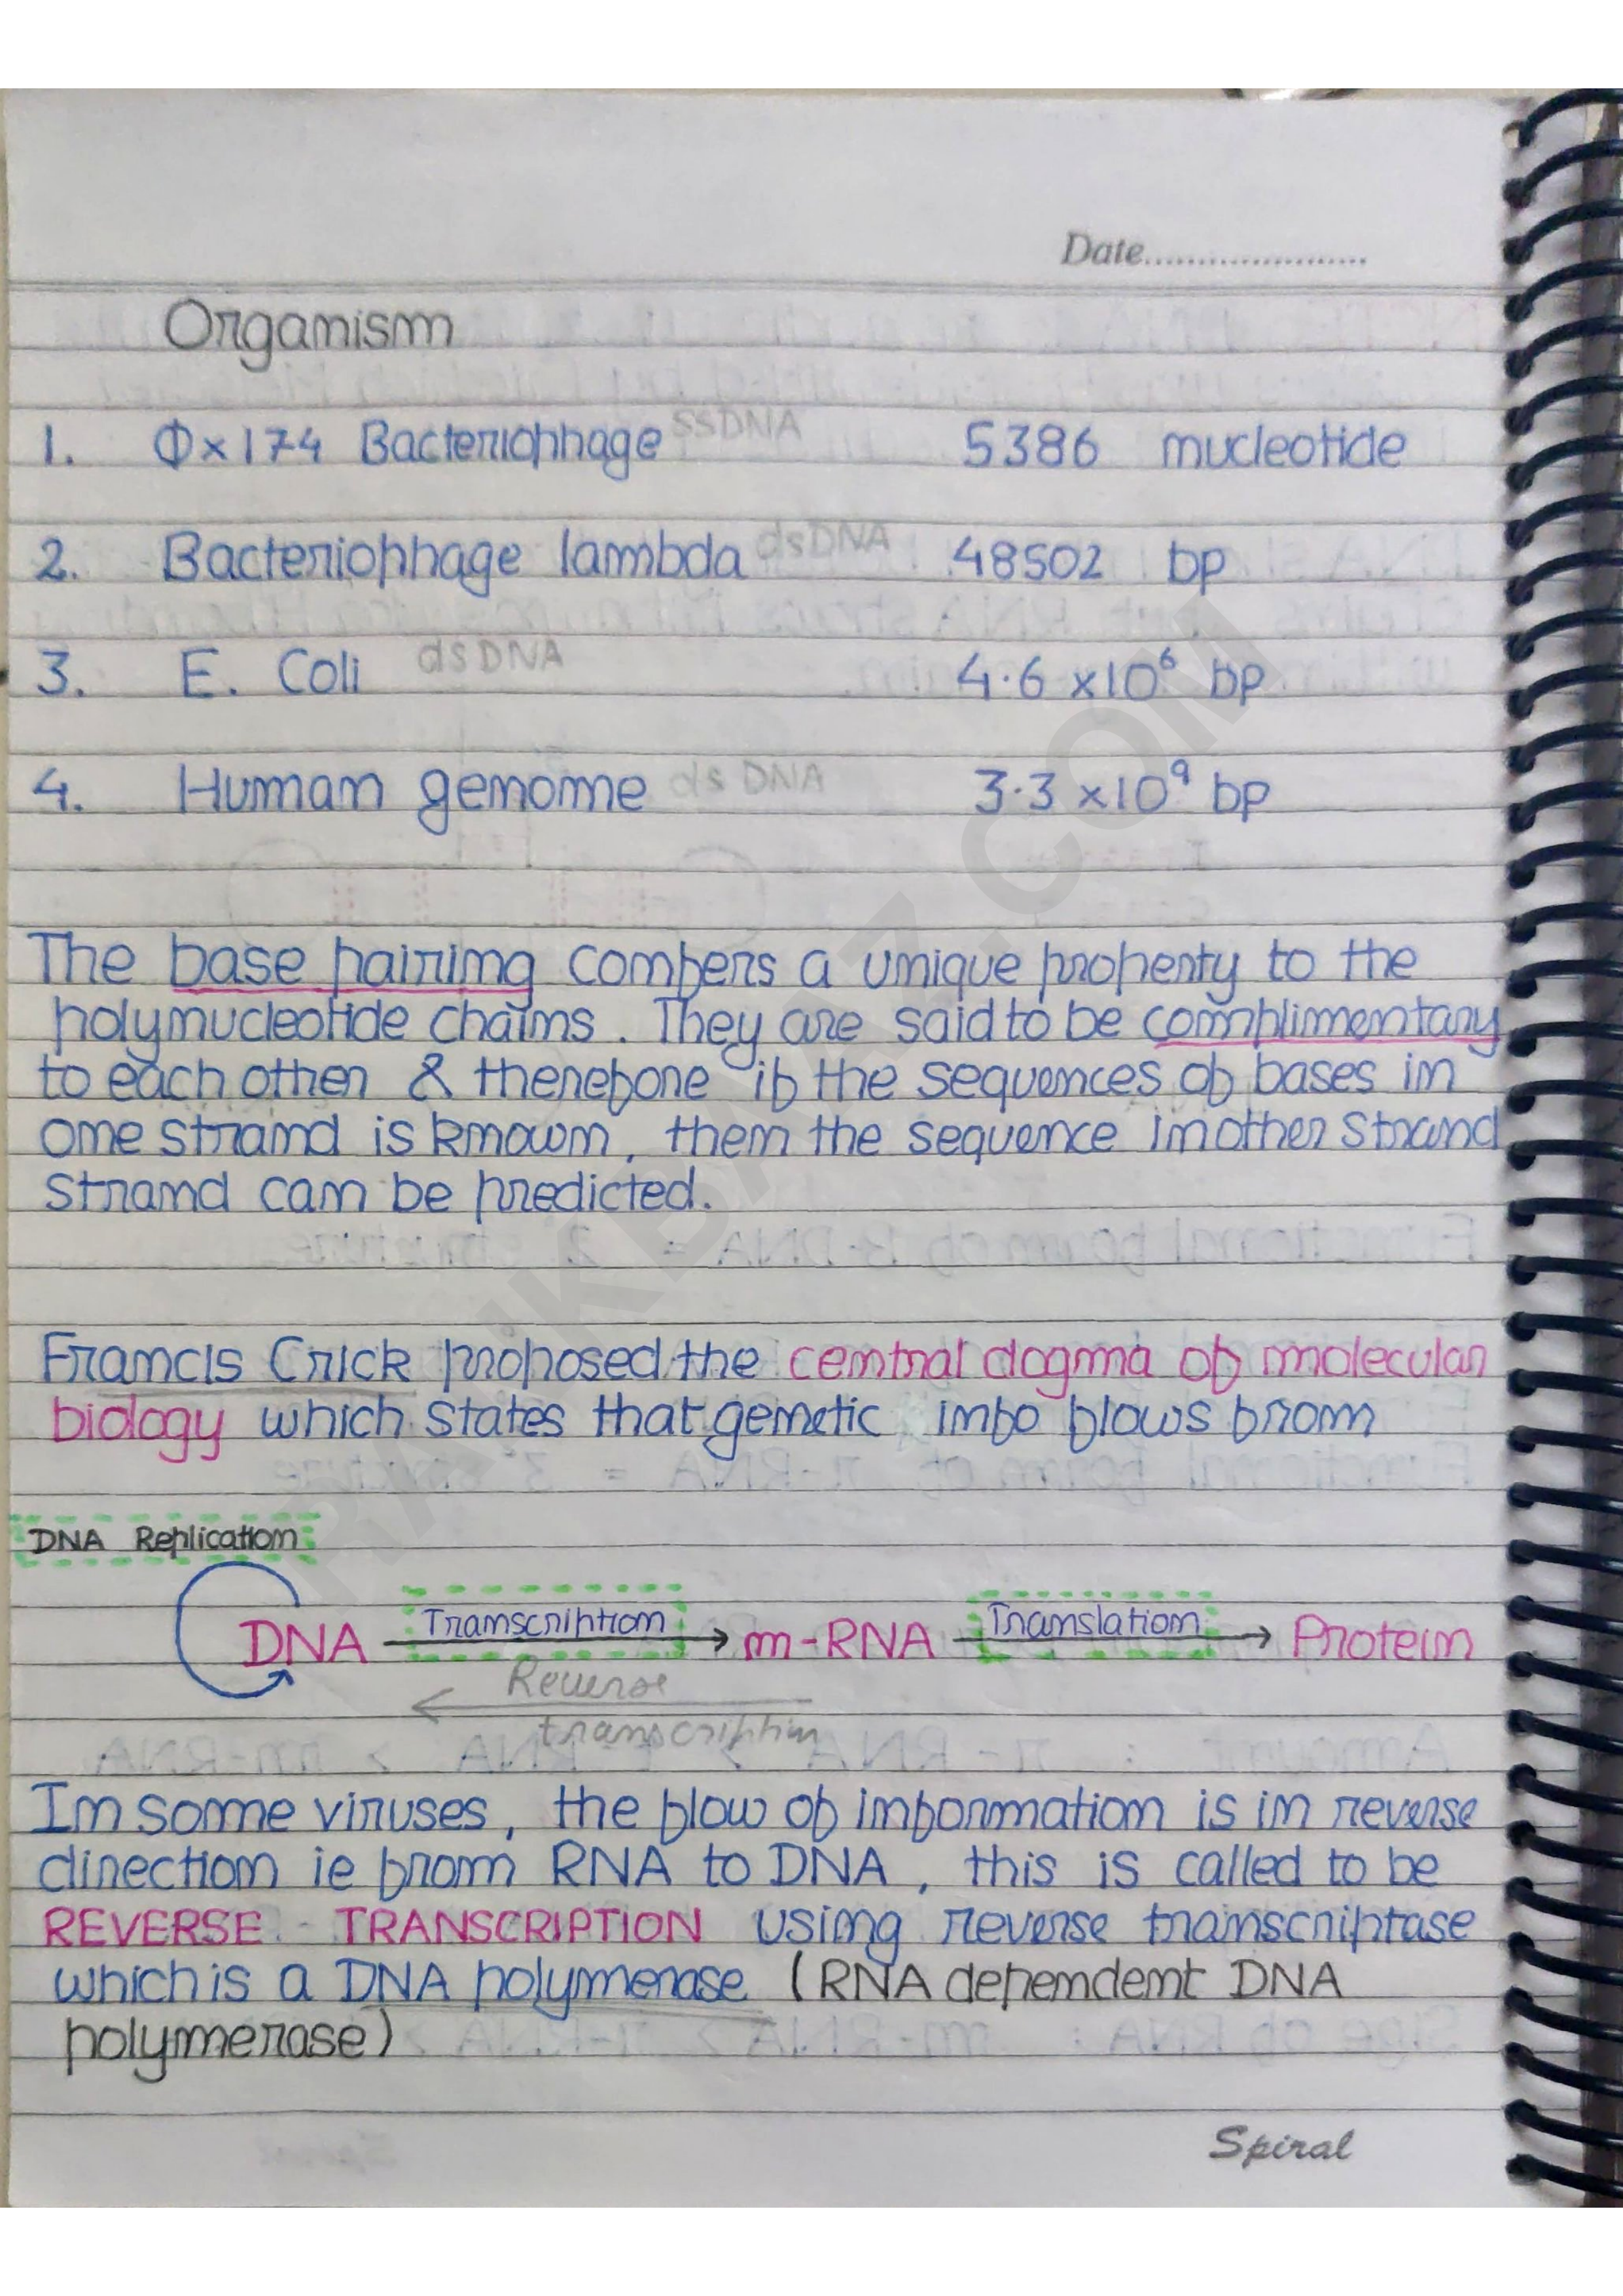 Date......................
Organism
1. Φx174 Bacteriophage ssDNA 5386 nucleotide
2. Bacteriophage lambda dsDNA 48502 bp
3. E. Coli dsDNA 4.6 x10⁶ bp
4. Human genome ds DNA 3.3 x10⁹ bp
The base pairing confers a unique property to the
polynucleotide chains. They are said to be complimentary
to each other & therefore if the sequences of bases in
one strand is known, then the sequence in other strand
strand can be predicted.
Francis Crick proposed the central dogma of molecular
biology which states that genetic info flows from
DNA Replication
DNA Transcription → m-RNA Translation → Protein
← Reverse
transcription
In some viruses, the flow of information is in reverse
direction ie from RNA to DNA, this is called to be
REVERSE TRANSCRIPTION using reverse transcriptase
which is a DNA polymerase (RNA dependent DNA
polymerase)
Spiral
RANKBAAZ.COM